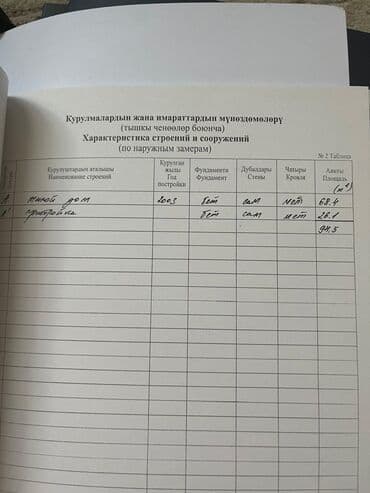 Курулмалардын жана имараттардын мүнөздөмөлөрү
(тышкы ченөөлөр боюнча)
Характеристика строений и сооружений
(по наружным замерам)
№ 2 Таблица
Курулуштардын аталышы
Наименование строений
Курулган жылы
Год постройки
Фундаменти
Фундамент
Дубалдары
Стены
Чатыры
Кровля
Аянты
Площадь
(м²)
А жилой дом 2003 бет сам мет 68.4
пристройка бет сам мет 26.1
94,5